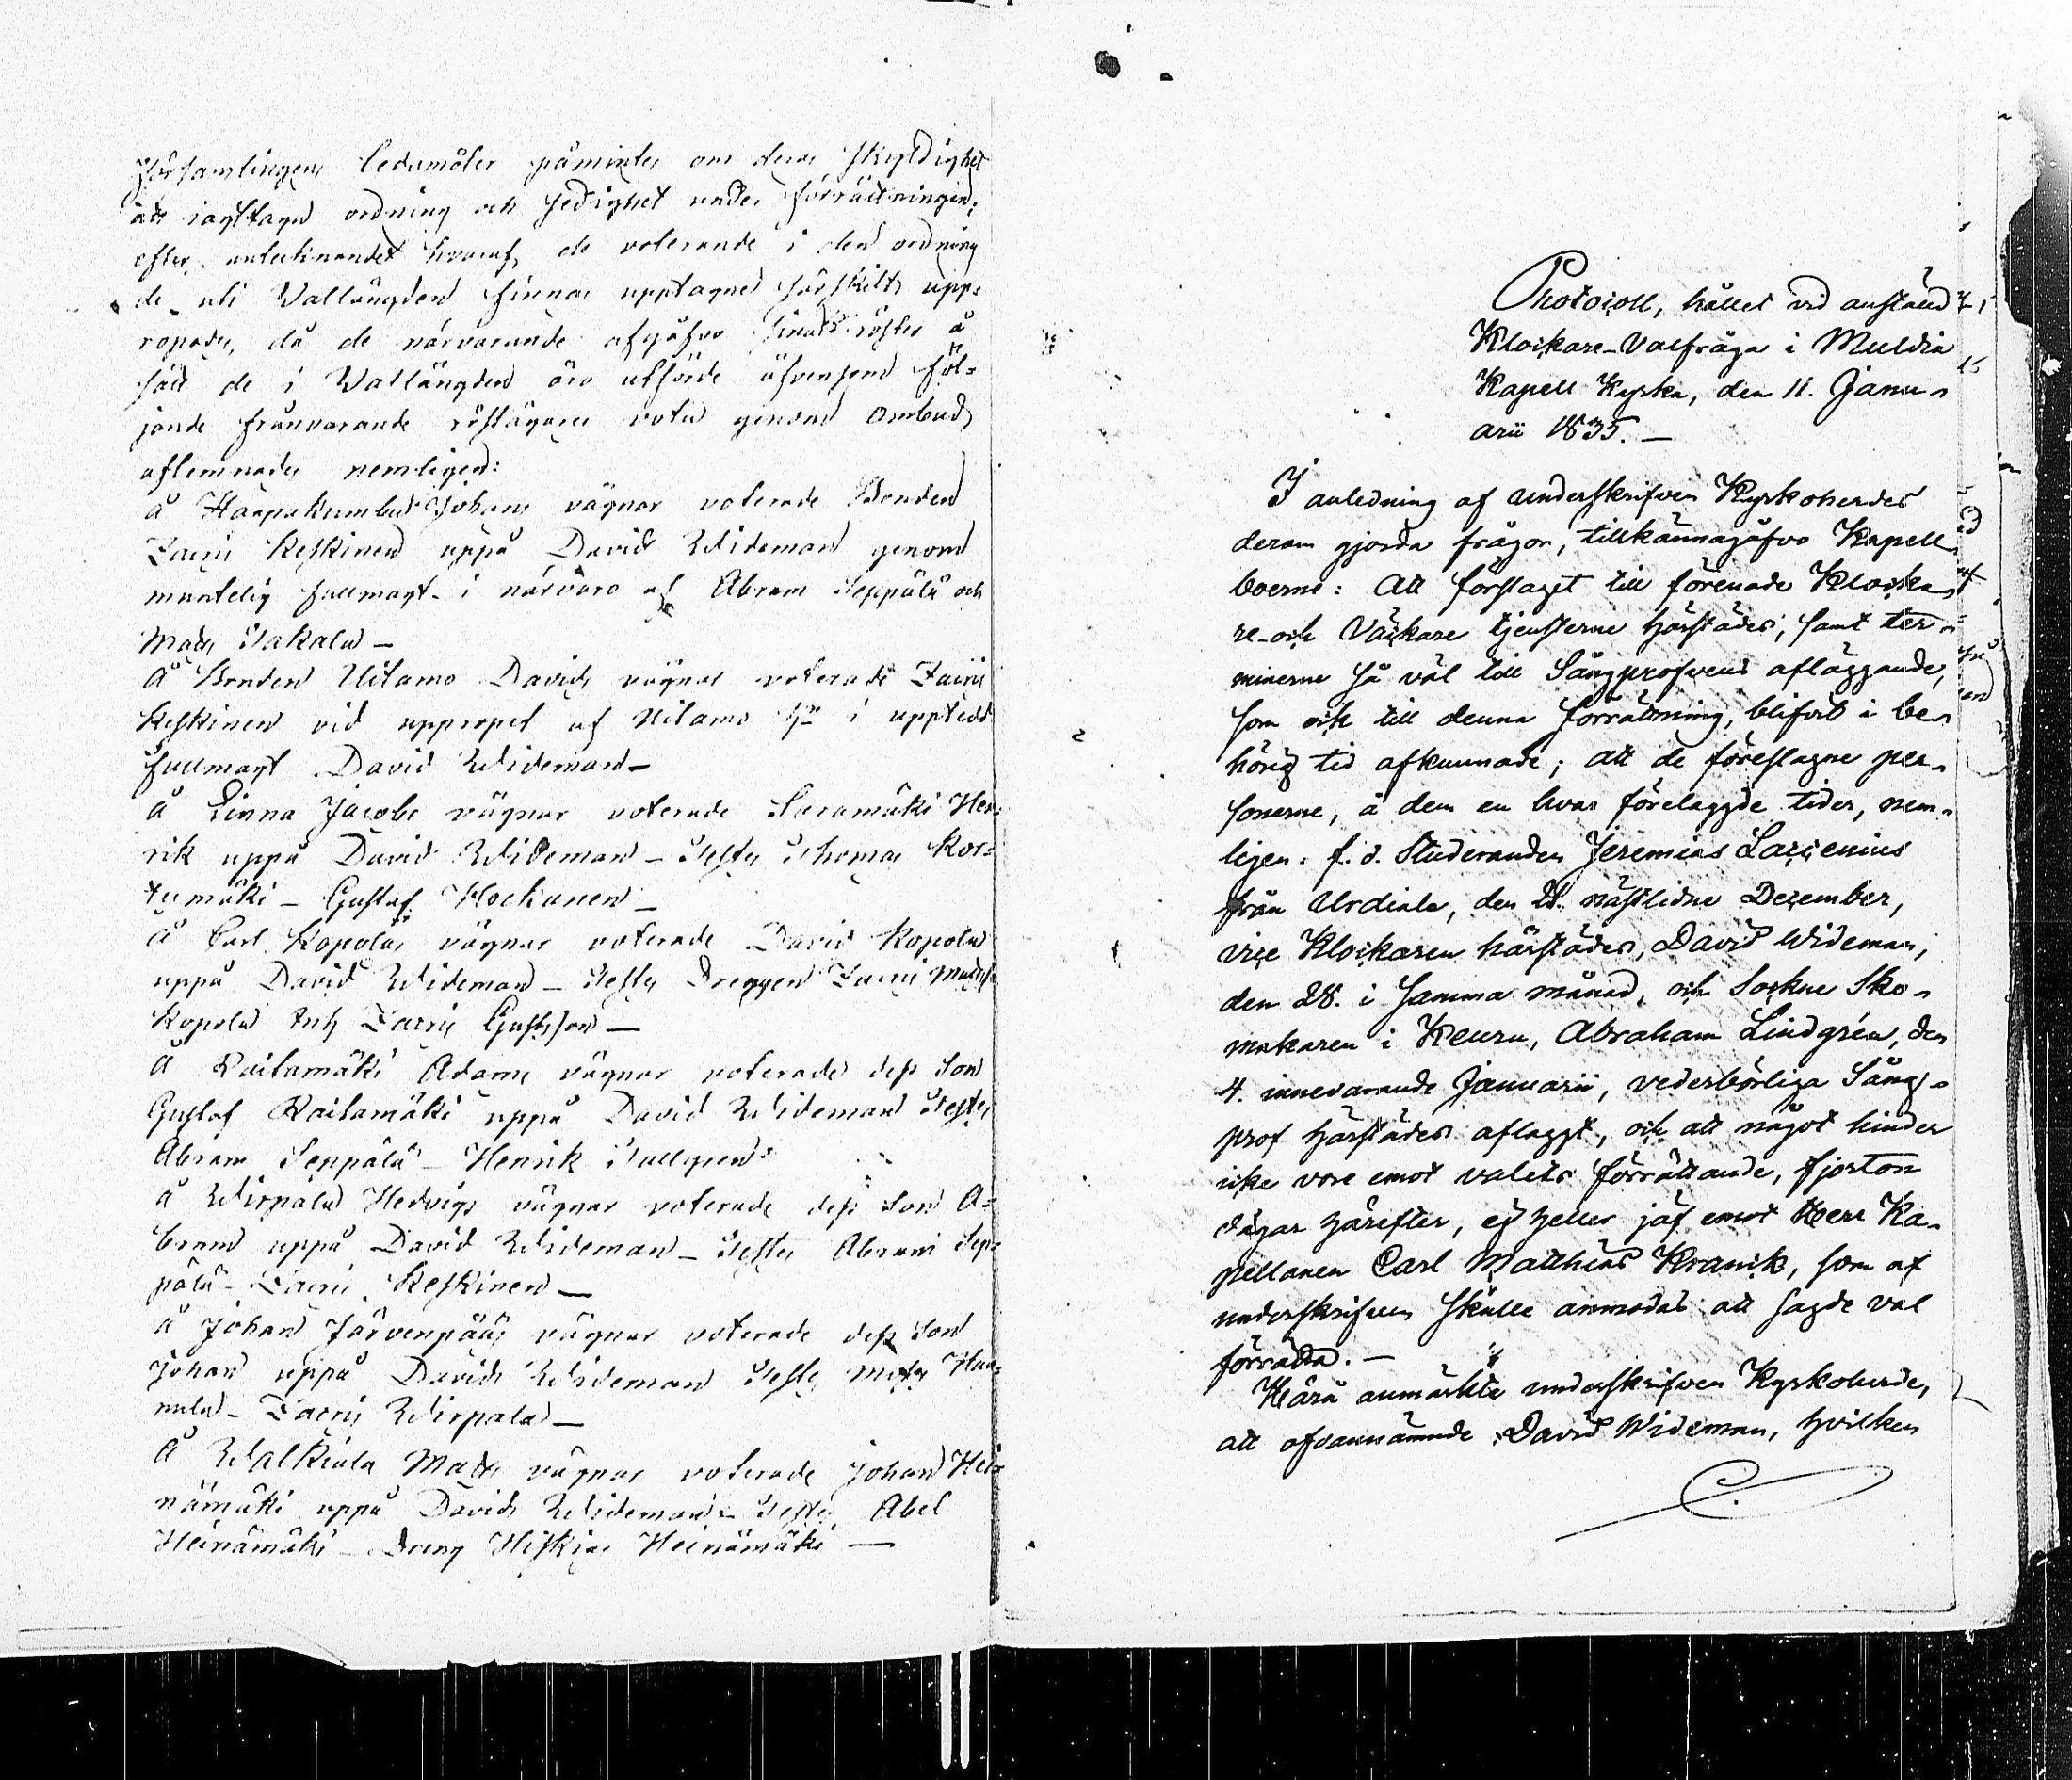 Församlingens ledamöter påmintes om deras skyldighet
att iagttaga ordning och sedighet under förrättningen;
efter anteknandet hvaraf, de voterande i den ordning
de uti Vallängden finnas upptagne särskilt upp=
ropades, då de närvarande afgåfvo sina röster å
sätt de i Vallängden äro utförde äfvensom föl=
jande frånvarande röstägares vota genom ombud
aflemnades nemligen:
å Haapakumbu Johans vägnar voterade Bonden
Zacris Keskinen uppå David Wideman genom
muntelig fullmagt i närvaro af Abram Seppälä och
Mats Takala —
Å Bonden Uitamo Davids vägnar voterade Zacris
Keskinen vid uppropet af Uitamo i upptedd
fullmagt David Wideman —
å Linna Jacobs vägnar voterade Saramäki Hen=
rik uppå David Wideman — Testes Thomas Kor=
tumäki — Gustaf Hockanen —
Å Carl Kopolas vägnar voterade David Kopola
uppå David Wideman — Testes Drengen Zacris Matss
Kopola och Zacris Gustsson —
Å Raitamäki Adams vägnar voterade dess Son
Gustaf Raitamäki uppå David Wideman Testes
Abram Seppälä — Henrik Tullgren
å Wirpala Hedvigs vägnar voterade dess Son A=
bram uppå David Wideman — Testes Abram Sep=
pälä — Zacris Keskinen —
å Johan Järvenpääs vägnar voterade dess Son
Johan uppå David Wideman Testes Mats Haa=
nala — Zacris Wirpala —
Å Walkiala Mats vägnar voterade Johan Hei=
nämäki uppå David Wideman — Testes Abel
Heinämäki — Dreng Hiskias Heinämäki —
Protocoll, hållet vid anstäld
Klockare-Valfråga i Muldia
Kapell Kyrka, den 11. Janu-
arii 1835. —
I anledning af underskrifven Kyrkoherdes
derom gjorda frågor, tillkännagåfvo Kapell-
boerne: Att förslaget till förenade Klocka-
re- och Väckare tjensterne härstädes, samt ter-
minerne så väl till Sångprofvens afläggande,
som ock till denna förrättning, blifvit i be-
hörig tid afkunnade; att de föreslagne per-
sonerne, å dem en hvar förelaggde tider, nem-
ligen: f. d. Studeranden Jeremias Laccenius
från Urdiala, den 21. nästlidne December,
vice Klockaren härstädes, David Wideman,
den 28. i samma månad, och Sockne Sko-
makaren i Keuru, Abraham Lindgrén, den
4. innevarande Januarii, vederbörliga Sång-
prof härstädes aflaggt, och att något hinder
icke vore emot valets förrättande, fjorton
dagar härefter, ej heller jäf emot Herr Ka-
pellanen Carl Matthias Kranck, som af
underskrifven skulle anmodas att sagde val
förrätta. —
Härå anmärkte underskrifven Kyrkoherde,
att ofvannämnde David Wideman, hvilken
C.